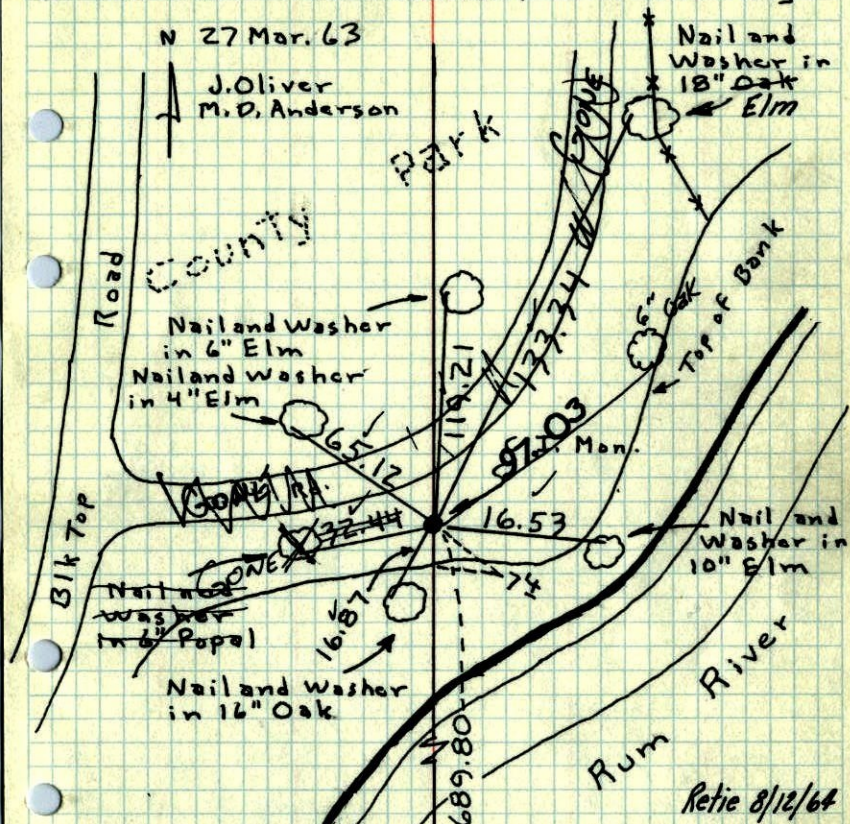 N 27 Mar. 63
J. Oliver
M. D. Anderson
Nail and
Washer in
18" Oak
Elm
County Park
GONE
Road
Nail and Washer
in 6" Elm
Nail and Washer
in 4" Elm
119.21
137.34
6" Oak
Top of Bank
65.12
97.03
Mon.
GONE
32.44
16.53
Nail and
Washer in
10" Elm
Blk Top
GONE
Nail and
Washer
in 6" Popal
74
16.87
Nail and Washer
in 16" Oak
689.80
Rum River
Retie 8/12/64